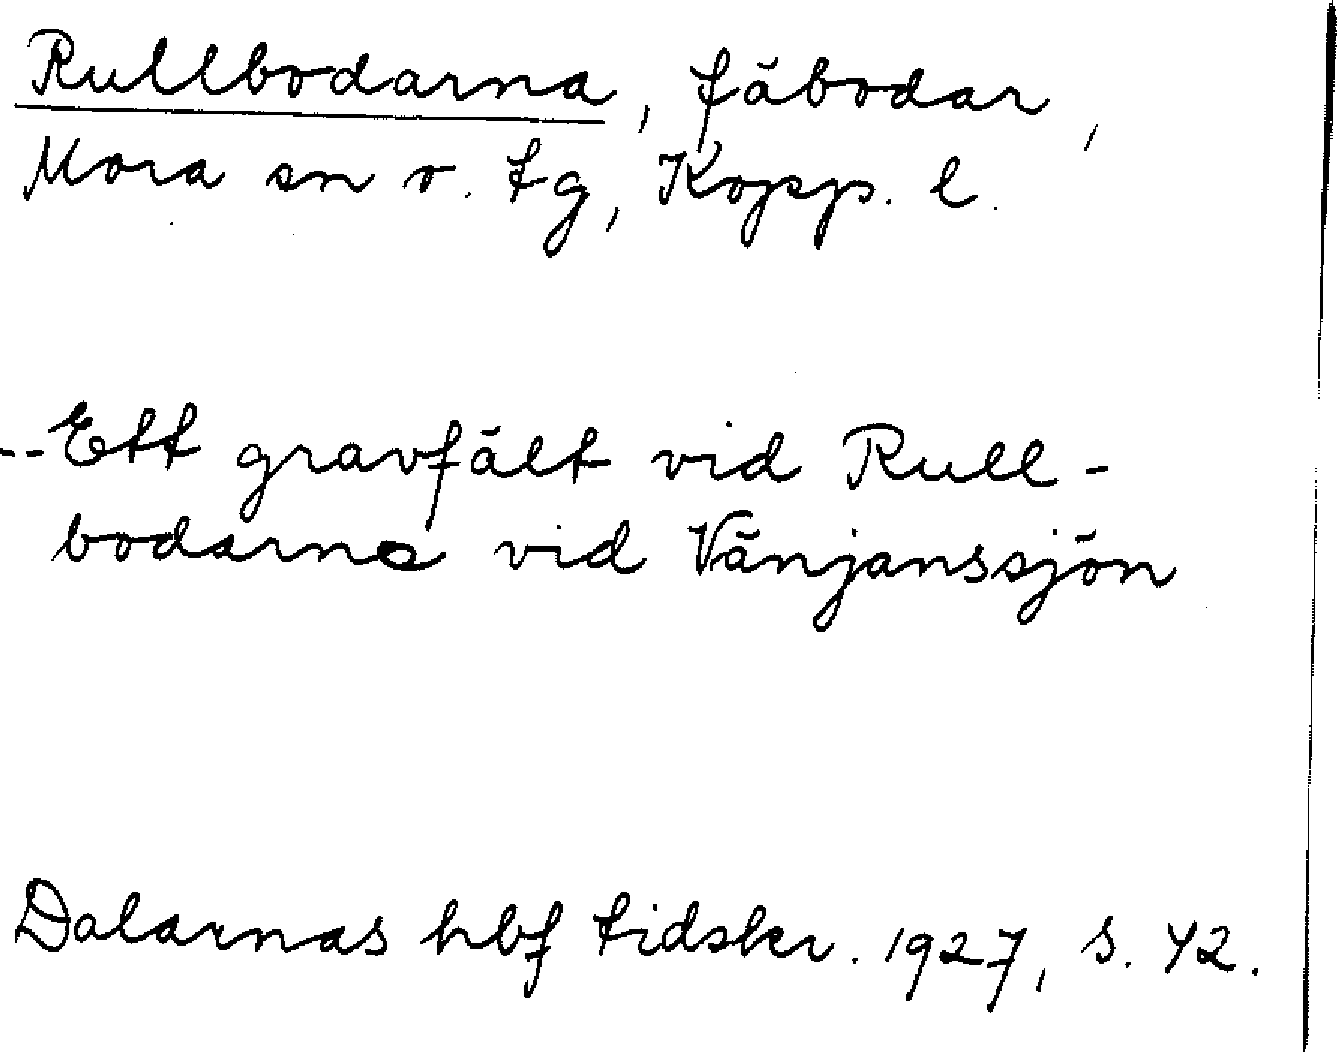 Rullbodarna, fäbodar,
Mora sn o. tg, Kopp. l.
--Ett gravfält vid Rull-
bodarna vid Vänjanssjön
Dalarnas hbf tidskr. 1927, s. 42.